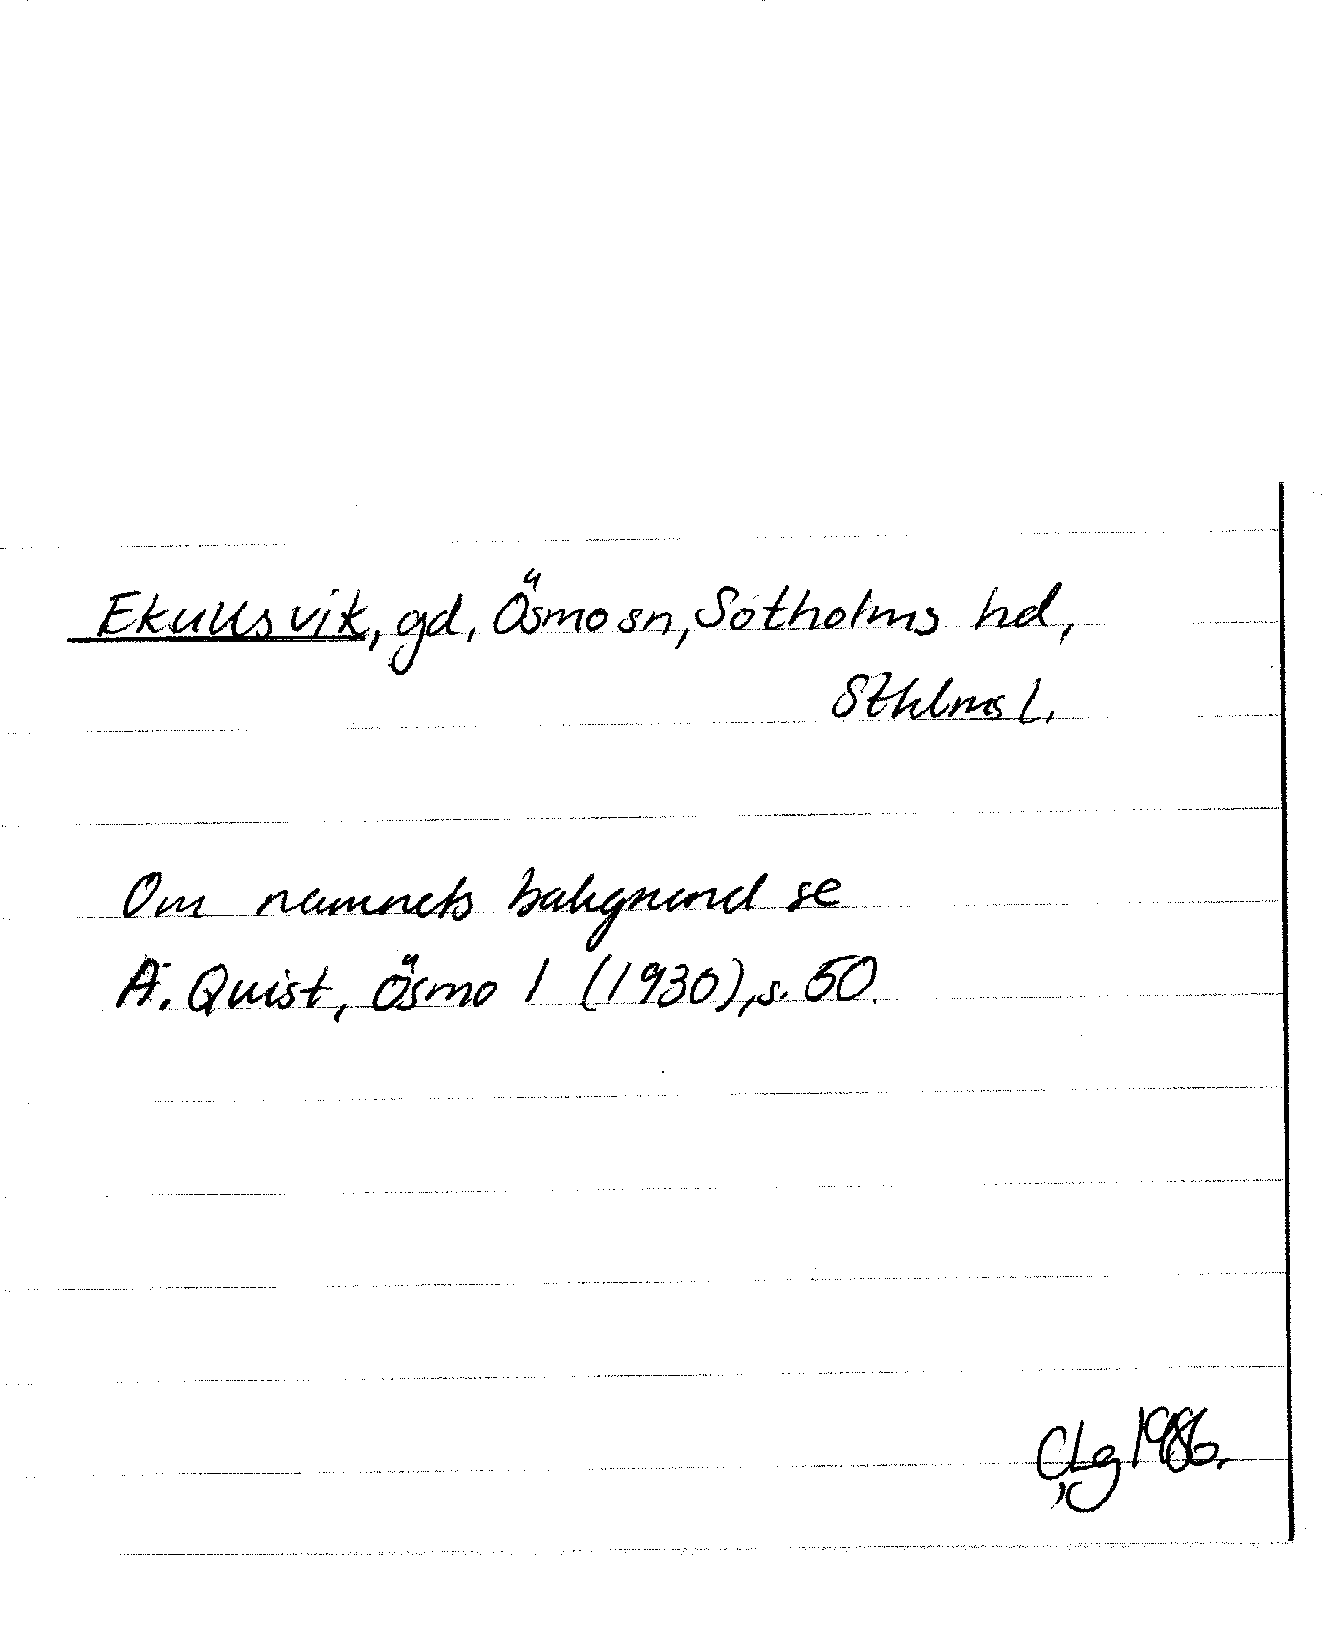 Ekullsvik, gd, Ösmo sn, Sotholms hd,
Sthlms l.
Om namnets bakgrund se
A. Quist, Ösmo 1 (1930), s. 50.
CLg 1986.